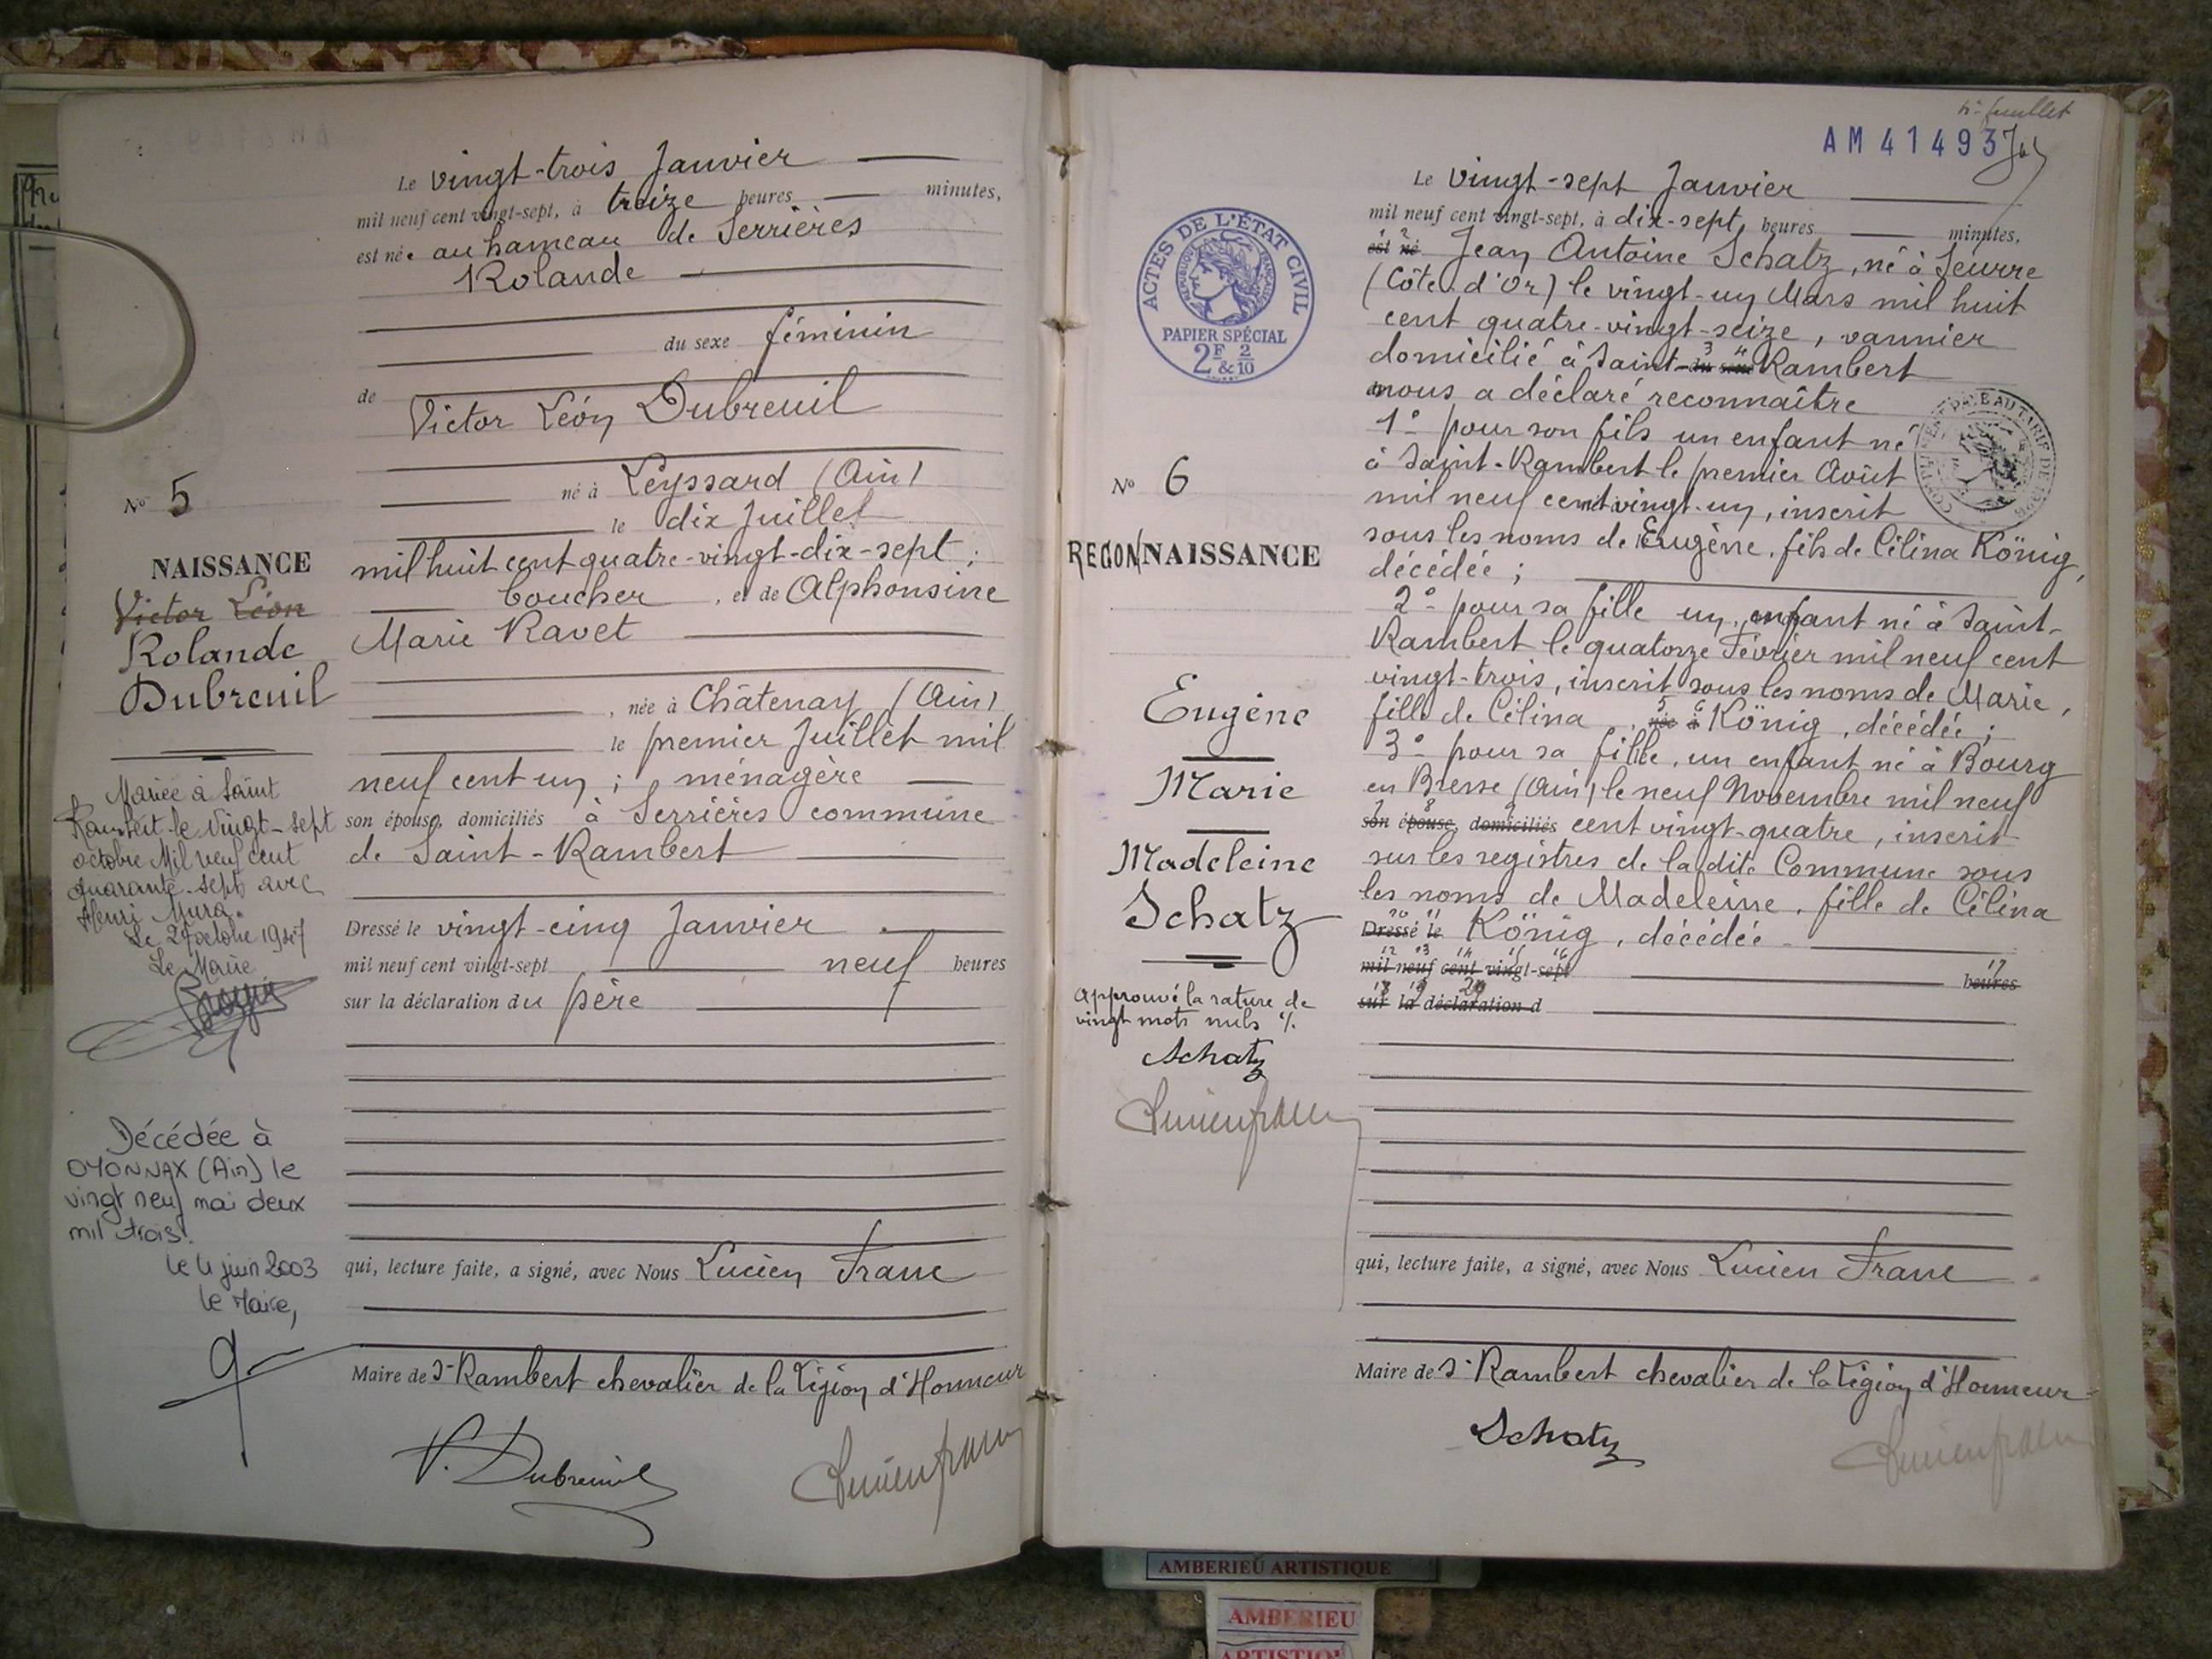 Le vingt-trois Janvier
mil neuf cent vingt-sept, à treize heures minutes,
est née au hameau de Serrières
Rolande
du sexe féminin
de
Victor Léon Dubreuil
né à Leyssard (Ain)
le dix Juillet
mil huit cent quatre-vingt-dix-sept ;
boucher, et de Alphonsine
Marie Ravet
, née à Châtenay (Ain)
le premier Juillet mil
neuf cent un ; ménagère
son épouse, domiciliés à Serrières commune
de Saint-Rambert
Dressé le vingt-cinq Janvier
mil neuf cent vingt-sept neuf heures
sur la déclaration du père
qui, lecture faite, a signé, avec Nous Lucien Franc
Maire de St Rambert chevalier de la Légion d'Honneur
V. Dubreuil
Lucien franc
No 5
NAISSANCE
Victor Léon
Rolande
Dubreuil
Mariée à Saint
Rambert le vingt-sept
octobre Mil neuf cent
quarante-sept avec
Henri Mura.
Le 27 octobre 1947
Le Maire
Décédée à
OYONNAX (Ain) le
vingt neuf mai deux
mil trois.
le 4 juin 2003
le Maire,
4e feuillet
AM 41493
ACTES DE L'ÉTAT CIVIL
RÉPUBLIQUE FRANÇAISE
PAPIER SPÉCIAL
2F & 2/10
No 6
RECONNAISSANCE
Eugène
Marie
Madeleine
Schatz
Approuvé la rature de
vingt mots nuls
Schatz
Lucien franc
Le vingt-sept Janvier
mil neuf cent vingt-sept, à dix-sept heures minutes,
1 2
est né Jean Antoine Schatz, né à Seurre
(Côte d'Or) le vingt-un Mars mil huit
cent quatre-vingt-seize, vannier
3 4
domicilié à Saint- du sexe Rambert
nous a déclaré reconnaître
1° pour son fils un enfant né
à Saint-Rambert le premier Août
mil neuf cent vingt-un, inscrit
sous les noms de Eugène, fils de Célina König,
décédée ;
2° pour sa fille un enfant né à Saint-
Rambert le quatorze Février mil neuf cent
vingt-trois, inscrit sous les noms de Marie,
5 6
fille de Célina , née à König, décédée ;
3° pour sa fille, un enfant né à Bourg
en Bresse (Ain) le neuf Novembre mil neuf
7 8 9
son épouse, domiciliés cent vingt-quatre, inscrit
sur les registres de la dite Commune sous
les noms de Madeleine, fille de Célina
10 11
Dressé le König, décédée
12 13 14 15 16 17
mil neuf cent vingt-sept heures
18 19 20
sur la déclaration d
qui, lecture faite, a signé, avec Nous Lucien Franc
Maire de St Rambert chevalier de la Légion d'Honneur
Schatz
Lucien franc
AMBERIEU ARTISTIQUE
AMBERIEU
ARTISTIQU